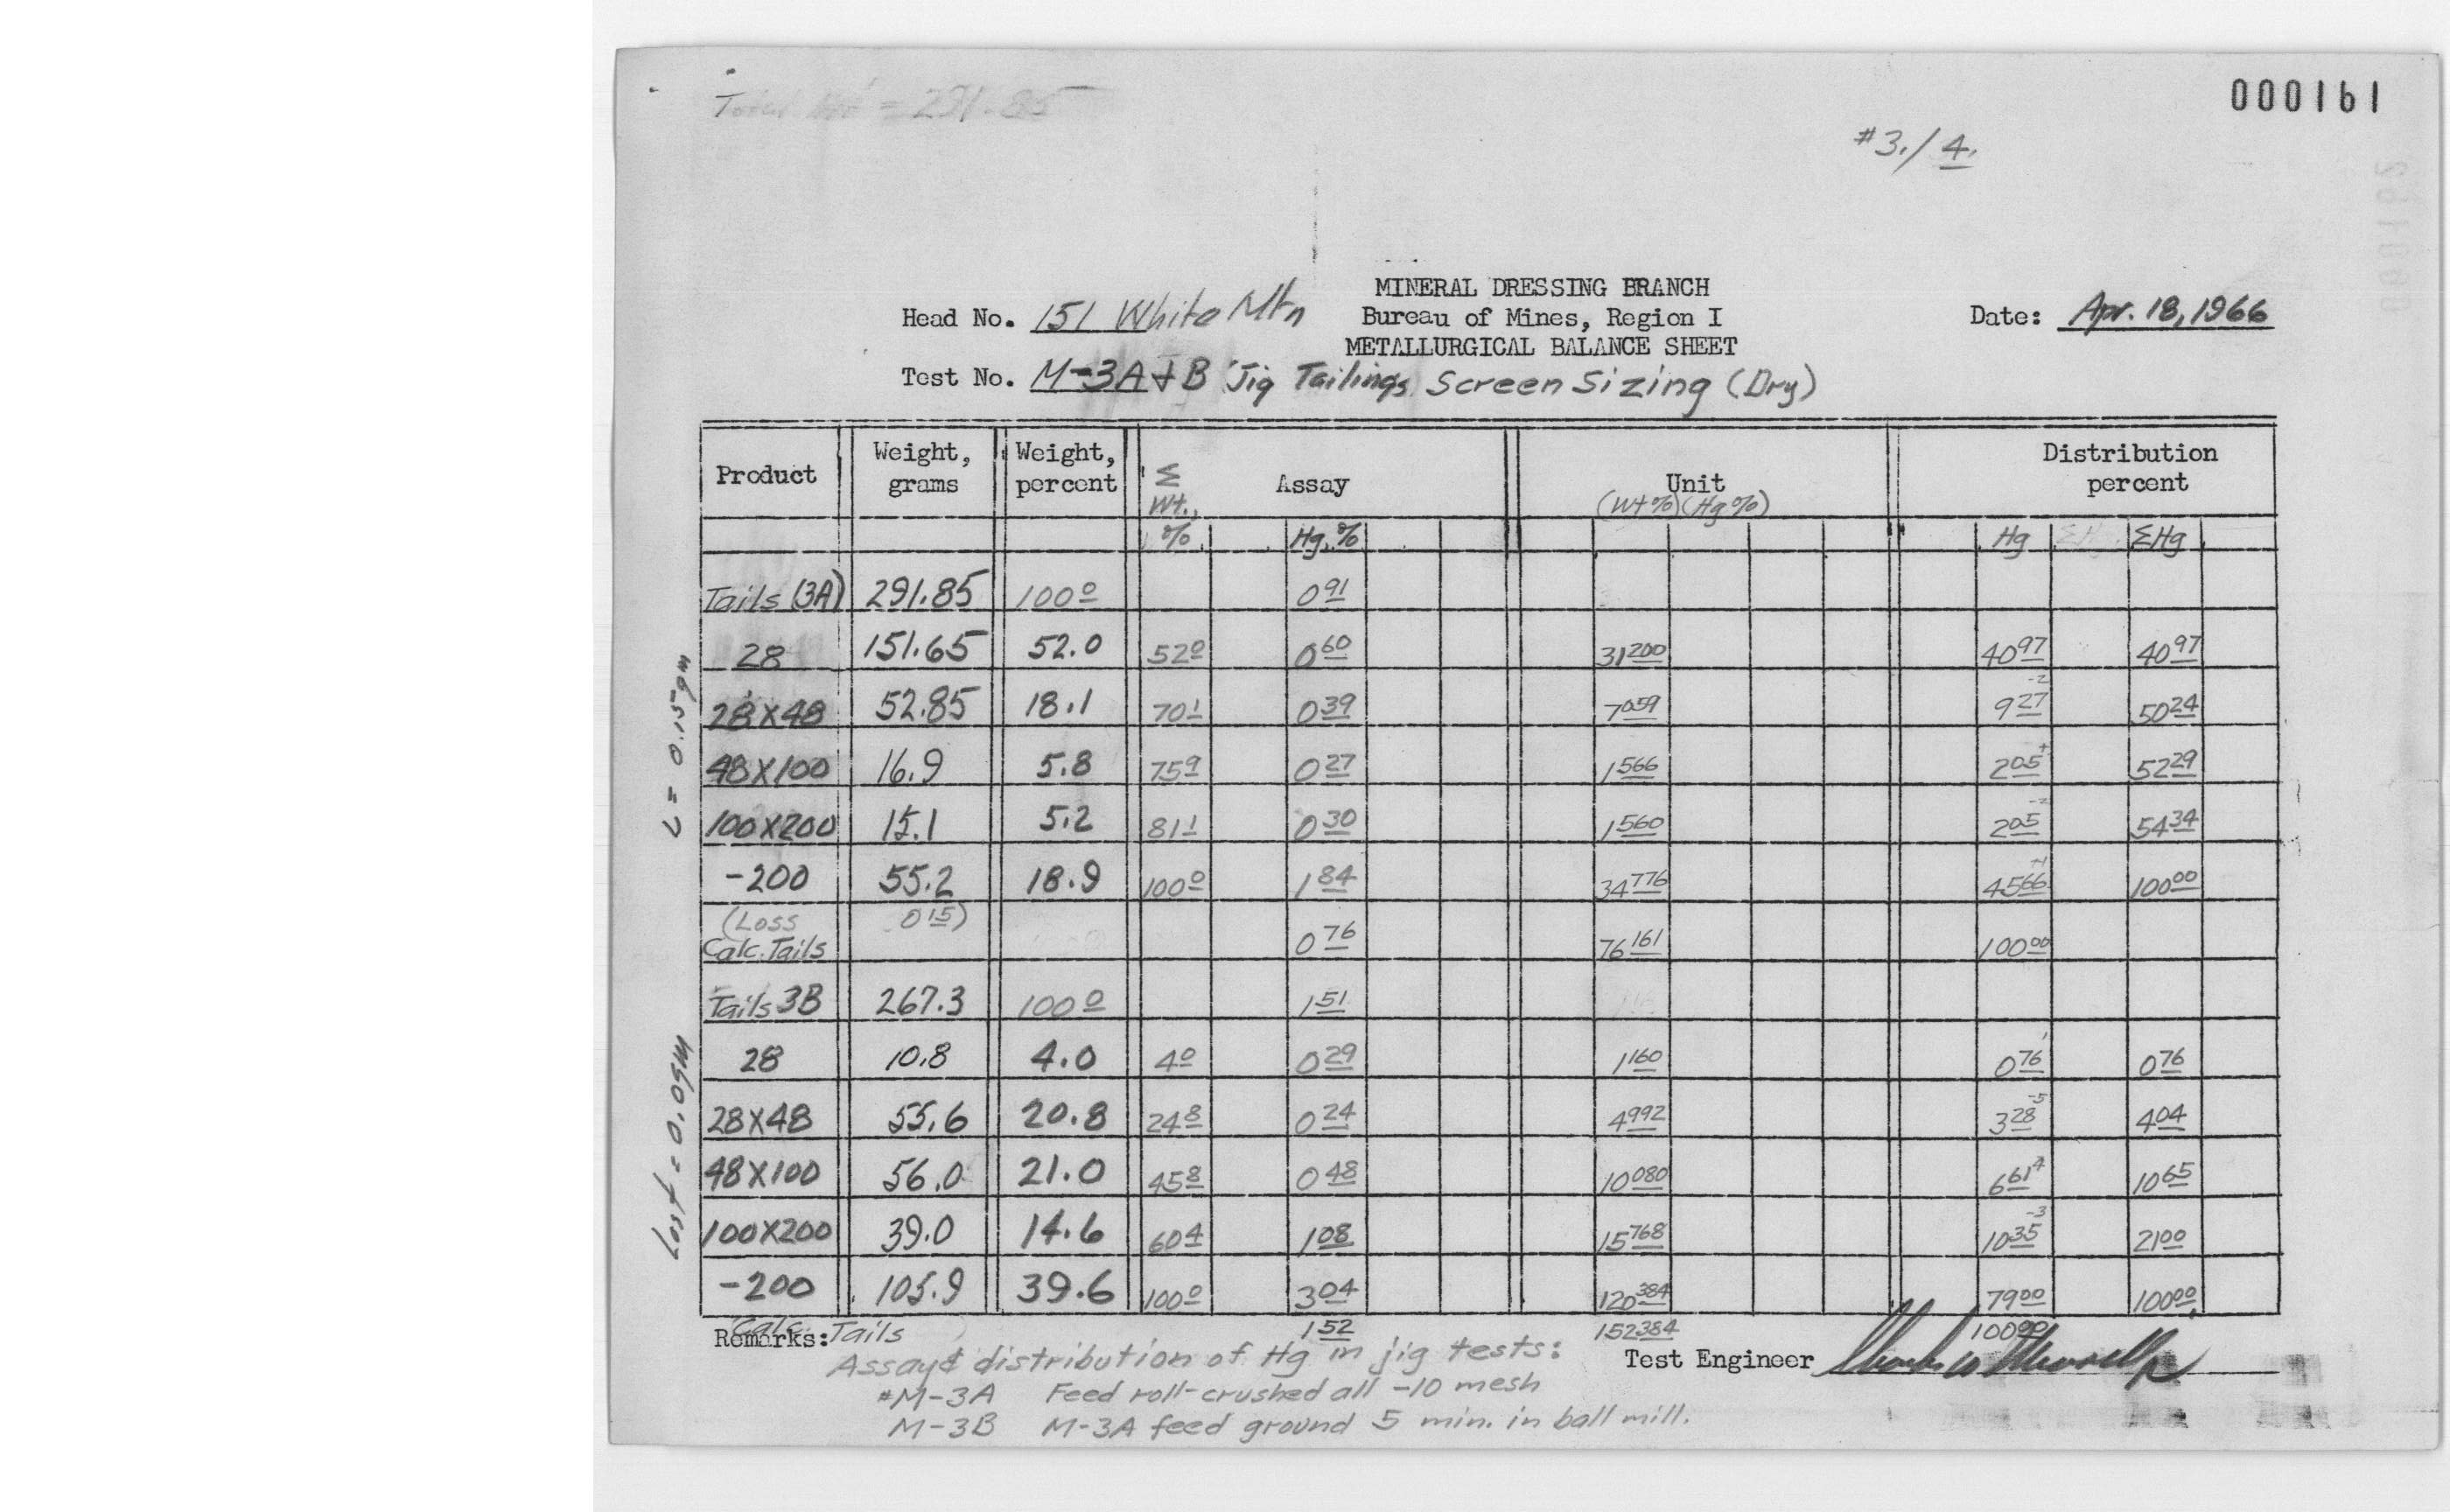 Total Wt = 291.85
000161
#3./4.
MINERAL DRESSING BRANCH
Head No. 151 White Mtn Bureau of Mines, Region I Date: Apr. 18, 1966
METALLURGICAL BALANCE SHEET
Test No. M-3A & B Jig Tailings Screen Sizing (Dry)
Product Weight, grams Weight, percent Σ Wt., % Assay Unit (Wt%)(Hg%) Distribution percent
Hg, % Hg ΣHg ΣHg
Tails (3A) 291.85 100 0 0 91
28 151.65 52.0 52 0 0 60 31 200 40 97 40 97
28X48 52.85 18.1 70 1 0 39 7 059 9 27 -2 50 24
48X100 16.9 5.8 75 9 0 27 1 566 2 05 + 52 29
100X200 15.1 5.2 81 1 0 30 1 560 2 05 -2 54 34
-200 55.2 18.9 100 0 1 84 34 776 45 66 +1 100 00
(Loss 0 15)
Calc. Tails 0 76 76 161 100 00
Tails 3B 267.3 100 0 1 51
28 10.8 4.0 4 0 0 29 1 160 0 76 0 76
28X48 55.6 20.8 24 8 0 24 4 992 3 28 -5 4 04
48X100 56.0 21.0 45 8 0 48 10 080 6 61 10 65
100X200 39.0 14.6 60 4 1 08 15 768 10 35 -3 21 00
-200 105.9 39.6 100 0 3 04 120 384 79 00 100 00
Calc. Tails 1 52 152 384 100 00
L = 0.15 gm
Lost = 0.0 gm
Remarks:
Assay & distribution of Hg in jig tests: Test Engineer
#M-3A Feed roll-crushed all -10 mesh
M-3B M-3A feed ground 5 min. in ball mill.